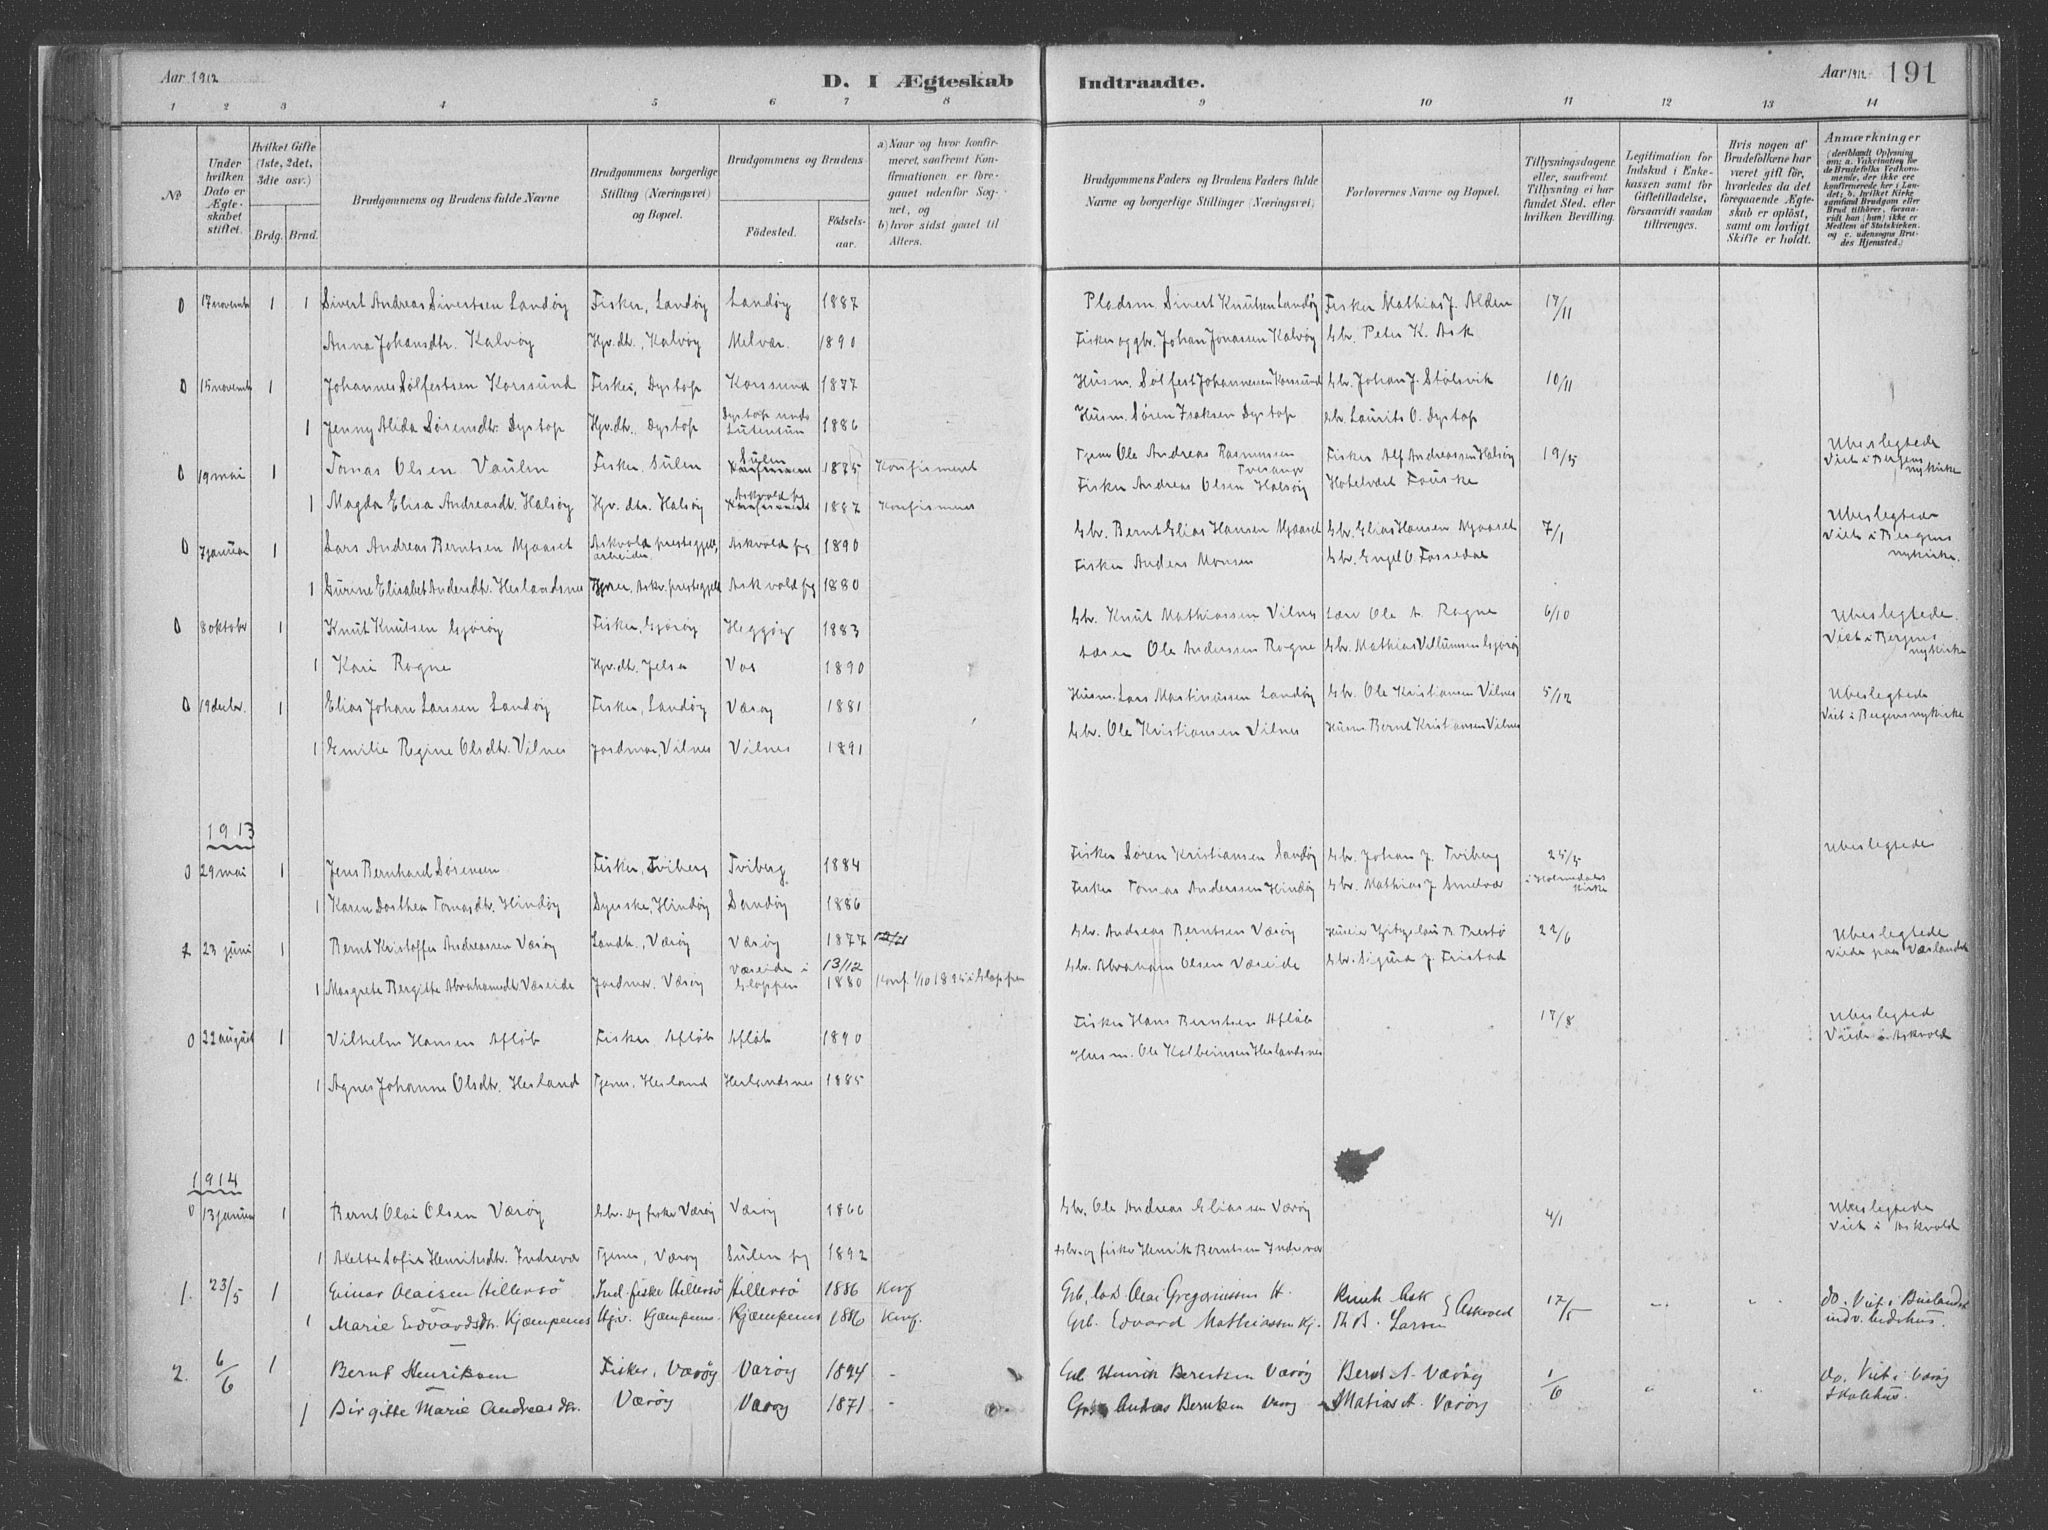 Aar 1912
D. I Ægteskab Indtraadte.
Aar 1912 191
1 2 3 4 5 6 7 8 9 10 11 12 13 14
No
Under hvilken Dato er Ægteskabet stiftet.
Hvilket Gifte (1ste, 2det, 3die osv.)
Brdg. Brud.
Brudgommens og Brudens fulde Navne
Brudgommens borgerlige Stilling (Næringsvei) og Bopæl.
Brudgommens og Brudens
Fødested. Fødselsaar.
a) Naar og hvor konfirmeret, saafremt Konfirmationen er foregaaet udenfor Sognet, og
b) hvor sidst gaaet til Alters.
Brudgommens Faders og Brudens Faders fulde Navne og borgerlige Stillinger (Næringsvei)
Forlovernes Navne og Bopæl.
Tillysningsdagene eller, saafremt Tillysning ei har fundet Sted, efter hvilken Bevilling.
Legitimation for Indskud i Enkekassen samt for Giftetilladelse, forsaavidt saadan tiltrænges.
Hvis nogen af Brudefolkene har været gift før, hvorledes da det foregaaende Ægteskab er opløst, samt om lovligt Skifte er holdt.
Anmærkninger (deriblandt Oplysning om: a. Vakcination for de Brudefolks Vedkommende, der ikke ere konfirmerede her i Landet; b. hvilket Kirkesamfund Brudgom eller Brud tilhører, forsaavidt han (hun) ikke er Medlem af Statskirken. og c. udensogns Brudes Hjemsted.)
0 17 novemb 1 1 Sivert Andreas Sivertsen Landøy Fisker, Landøy Landøy 1887 Pladsm. Sivert Knutsen Landøy Fisker Mathias J. Alden 17/11
Anna Johansdtr. Kalvøy Hgv.dtr., Kalvøy Melvær 1890 Fisker og gbr. Johan Jonassen Kalvøy Gbr. Peter K. Ask
0 15 novemb 1 Johannes Sølfestsen Korssund Fisker, Dystop Korssund 1877 Husm. Sølfest Johannessen Korssund Gbr. Johan J. Stølsvik 10/11
1 Jenny Alida Sørensdtr. Dystop Hgv.dtr. Dystop Dystop 1886 Husm. Søren Isaksen Dystop Gbr. Laurits O. Dystop
0 19 mai 1 Tomas Olsen Vaulen Fisker, Sulen Sulen 1885 Konfirmert Tjener Ole Andreas Rasmussen Fisker Alf Andreassen Halsøy 19/5 Ubeslegtede Viet i Bergens nykirke
1 Magda Elisa Andreasdtr. Halsøy Hgv. dtr. Halsøy Askvold pg 1887 Konfirmert Fisker Andreas Olsen Halsøy Hotelvært Fauske
0 7 januar 1 Lars Andreas Berntsen Mjaaset Askvold prestegjeld, arbeider Askvold pg 1890 Gbr. Bernt Elias Hansen Mjaaset Gbr. Elias Hansen Mjaaset 7/1 Ubeslegtede Viet i Bergens nykirke.
1 Gurine Elisabet Andersdtr. Heslandsnes Askv. prestegjeld Askvold pg 1880 Fisker Anders Monsen Gbr. Engel O. Fossedal
0 8 oktober 1 Knut Knutsen Gjørøy Fisker, Gjørøy Heggøy 1883 Gbr. Knut Mathiassen Vilnes Lærer Ole A. Rogne 6/10 Ubeslegtede. Viet i Bergens nykirke
1 Kari Rogne Hgv.dtr. Jelsa Vos 1890 Lærer Ole Anderssen Rogne Gbr. Mathias Villumsen Gjørøy
0 19 decbr. 1 Elias Johan Larssen Landøy Fisker, Landøy Værøy 1881 Husm. Lars Martinussen Landøy Gbr. Ole Kristiansen Vilnes 5/12 Ubeslegtede Viet i Bergens nykirke
1 Emilie Regine Olsdtr. Vilnes Jordmor, Vilnes Vilnes 1891 Gbr. Ole Kristiansen Vilnes Husm. Bernt Kristiansen Vilnes
1913
0 29 mai 1 Jens Bernhard Sørensen Fisker, Tviberg Tviberg 1884 Fisker Søren Kristiansen Sandøy Gbr. Johan J. Tviberg 25/5 i Holmedals kirke Ubeslegtede
1 Karen Dorthea Tomasdtr. Hindøy Syerske, Hindøy Sandøy 1886 Fisker Tomas Anderssen Hindøy Gbr. Mathias J. Smelvær
23 juni 1 Bernt Kristoffer Andreassen Værøy Landh., Værøy Værøy 1877 Gbr. Andreas Berntsen Værøy 22/6 Ubeslegtede
1 Margrete Bergitte Abrahamsdtr. Væreide Jordmor. Værøy Væreide i Gloppen 13/12 1880 Konf. 1/10 1895 i Gloppen Gbr. Abraham Olsen Væreide Gbr. Sigurd J. Fristad
0 22 august 1 Vilhelm Hansen Afløb Fisker Afløb Afløb 1890 Fisker Hans Berntsen Afløb 17/8 Ubeslegtede Viede i Askvold
1 Agnes Johanne Olsdtr. Hesland Tjener, Hesland Heslandsnes 1885 Husm. Ole Kolbeinsen Heslandsnes
1914
0 13 januar 1 Bernt Olai Olsen Værøy Gbr. og fisker Værøy Værøy 1866 Gbr. Ole Andreas Eliassen Værøy 4/1 Ubeslegtede Viet i Askvold
1 Alette Sofie Henriksdtr. Indrevær Tjener, Værøy Sulen pg 1892 Gbr. og fisker Henrik Berntsen Indrevær
1. 23/5 1 Einar Olaisen Hillersø Ind. fisker Hillersø Hillersø 1886 Konf Olai Gregoriussen H. Knut Ask 17/5 do. Viet i Buelandet indv. bedehus.
1 Marie Edvardsdtr. Kjempenes Hgv. Kjempenes Kjæmpenes 1886 Konf. Grb. Edvard Mathiassen Kj. Th B. Larsen Askvold
2. 6/6 1 Bernt Henriksen Fisker, Værøy Værøy 1894 - Henrik Berntsen Værøy Bernt A. Værøy 1/6 " " do. Viet i Værøy Skolehus.
1 Birgitte Marie Andreasdtr. Værøy Værøy 1871 - Andreas Berntsen Værøy Matias A. Værøy